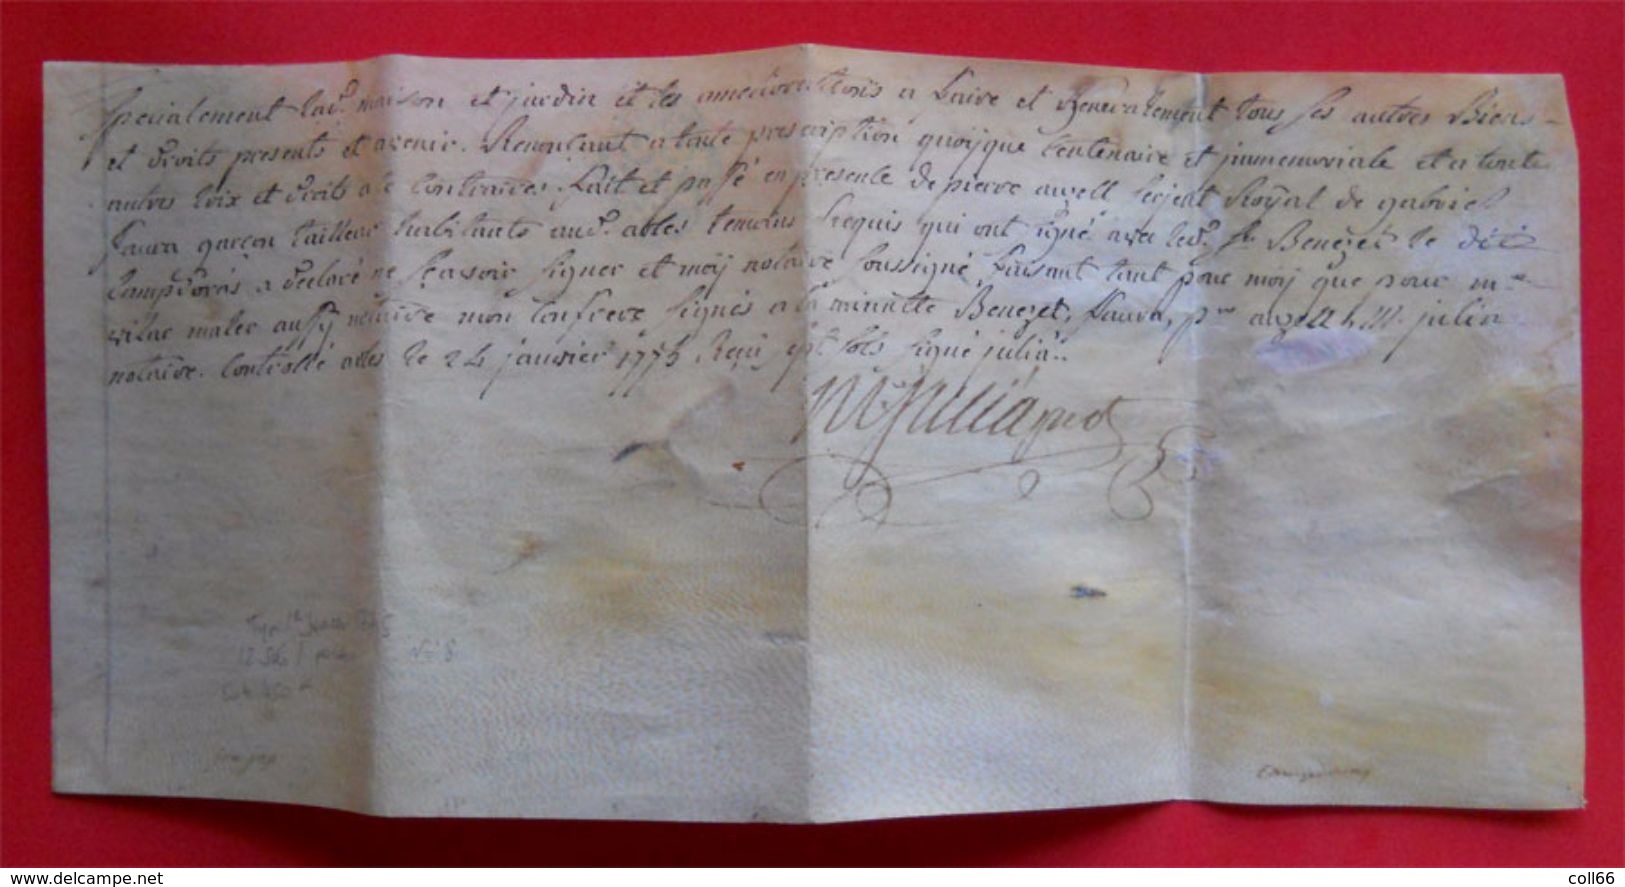 specialement lad.e maison et jardin et les ameliorations a faire et generalement tous ses autres Biens
et droits presents et avenir. Renonçant a toute prescription quoyque centenaire et jmmemoriale et a toute
autres loix et droits a ce contraires. fait et passé en presence de pierre auzell serjent Royal de gabriel
faura garçon tailleur habitants aud. arles temoins Requis qui ont signé avec led. sr Benezet le dit
Campdoràs a declaré ne sçavoir signer et moy notaire soussigné faisant tant pour moy que pour m.
vilar maler aussy notaire mon confrere signés a la minutte Benezet, faura, p.re auzell, M. julia
notaire. Controllé arles le 24 janvier 1775 Reçu sept sols signé julià
M Julià not
N.º 8
www.delcampe.net
coll66